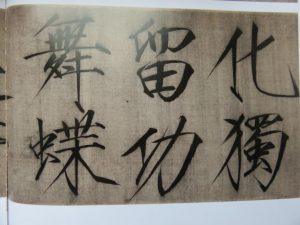 化獨
留功
舞蝶